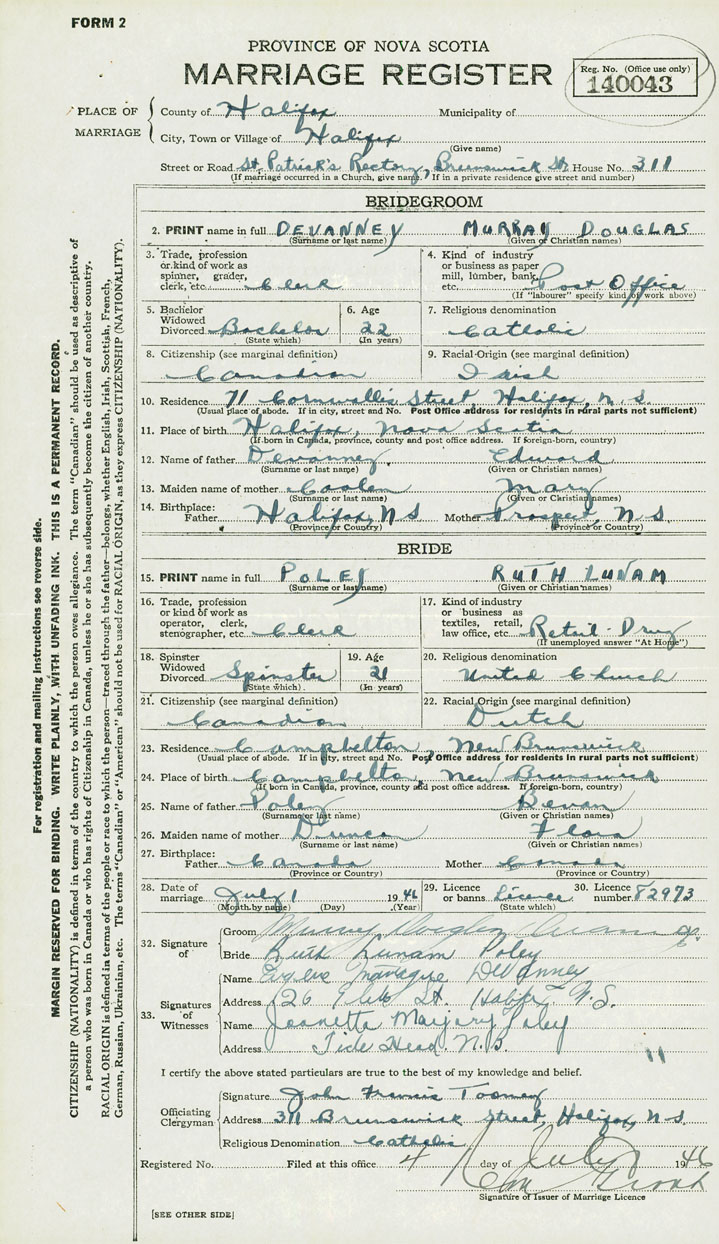 FORM 2
PROVINCE OF NOVA SCOTIA
MARRIAGE REGISTER
Reg. No. (Office use only)
140043
PLACE OF MARRIAGE
County of Halifax Municipality of
City, Town or Village of Halifax
(Give name)
Street or Road St. Patrick's Rectory, Brunswick St. House No. 311
(If marriage occurred in a Church, give name. If in a private residence give street and number)
BRIDEGROOM
2. PRINT name in full DEVANNEY MURRAY DOUGLAS
(Surname or last name) (Given or Christian names)
3. Trade, profession or kind of work as spinner, grader, clerk, etc. Clerk
4. Kind of industry or business as paper mill, lumber, bank, etc. Post Office
(If "labourer" specify kind of work above)
5. Bachelor Widowed Divorced Bachelor
(State which)
6. Age 22
(In years)
7. Religious denomination
Catholic
8. Citizenship (see marginal definition)
Canadian
9. Racial Origin (see marginal definition)
Irish
10. Residence 71 Cornwallis Street Halifax, N.S.
(Usual place of abode. If in city, street and No. Post Office address for residents in rural parts not sufficient)
11. Place of birth Halifax, Nova Scotia
(If born in Canada, province, county and post office address. If foreign-born, country)
12. Name of father Devanney Edward
(Surname or last name) (Given or Christian names)
13. Maiden name of mother Coolen Mary
(Surname or last name) (Given or Christian names)
14. Birthplace: Father Halifax, NS Mother Prospect, N.S.
(Province or Country) (Province or Country)
BRIDE
15. PRINT name in full POLEY RUTH LUNAM
(Surname or last name) (Given or Christian names)
16. Trade, profession or kind of work as operator, clerk, stenographer, etc. Clerk
17. Kind of industry or business as textiles, retail, law office, etc. Retail-Drug
(If unemployed answer "At Home")
18. Spinster Widowed Divorced Spinster
(State which)
19. Age 21
(In years)
20. Religious denomination
United Church
21. Citizenship (see marginal definition)
Canadian
22. Racial Origin (see marginal definition)
Dutch
23. Residence Campbelton, New Brunswick
(Usual place of abode. If in city, street and No. Post Office address for residents in rural parts not sufficient)
24. Place of birth Campbelton, New Brunswick
(If born in Canada, province, county and post office address. If foreign-born, country)
25. Name of father Poley Bevan
(Surname or last name) (Given or Christian names)
26. Maiden name of mother Duncan Flora
(Surname or last name) (Given or Christian names)
27. Birthplace: Father Canada Mother Canada
(Province or Country) (Province or Country)
28. Date of marriage July 1 1946
(Month by name) (Day) (Year)
29. Licence or banns Licence
(State which)
30. Licence number 82973
32. Signature of
Groom Murray Douglas
Bride Ruth Lunam Poley
33. Signatures of Witnesses
Name DeVanney
Address St. Halifax N.S.
Name Jeanette Marjory Poley
Address Tide Head. N.B.
11
I certify the above stated particulars are true to the best of my knowledge and belief.
Officiating Clergyman
Signature John Francis Toomey
Address 311 Brunswick Street, Halifax, N.S.
Religious Denomination Catholic
Registered No. Filed at this office 4 day of July 1946
Signature of Issuer of Marriage Licence
[SEE OTHER SIDE]
For registration and mailing instructions see reverse side.
MARGIN RESERVED FOR BINDING. WRITE PLAINLY, WITH UNFADING INK. THIS IS A PERMANENT RECORD.
CITIZENSHIP (NATIONALITY) is defined in terms of the country to which the person owes allegiance. The term "Canadian" should be used as descriptive of
a person who was born in Canada or who has rights of Citizenship in Canada, unless he or she has subsequently become the citizen of another country.
RACIAL ORIGIN is defined in terms of the people or race to which the person—traced through the father—belongs, whether English, Irish, Scottish, French,
German, Russian, Ukrainian, etc. The terms "Canadian" or "American" should not be used for RACIAL ORIGIN, as they express CITIZENSHIP (NATIONALITY).